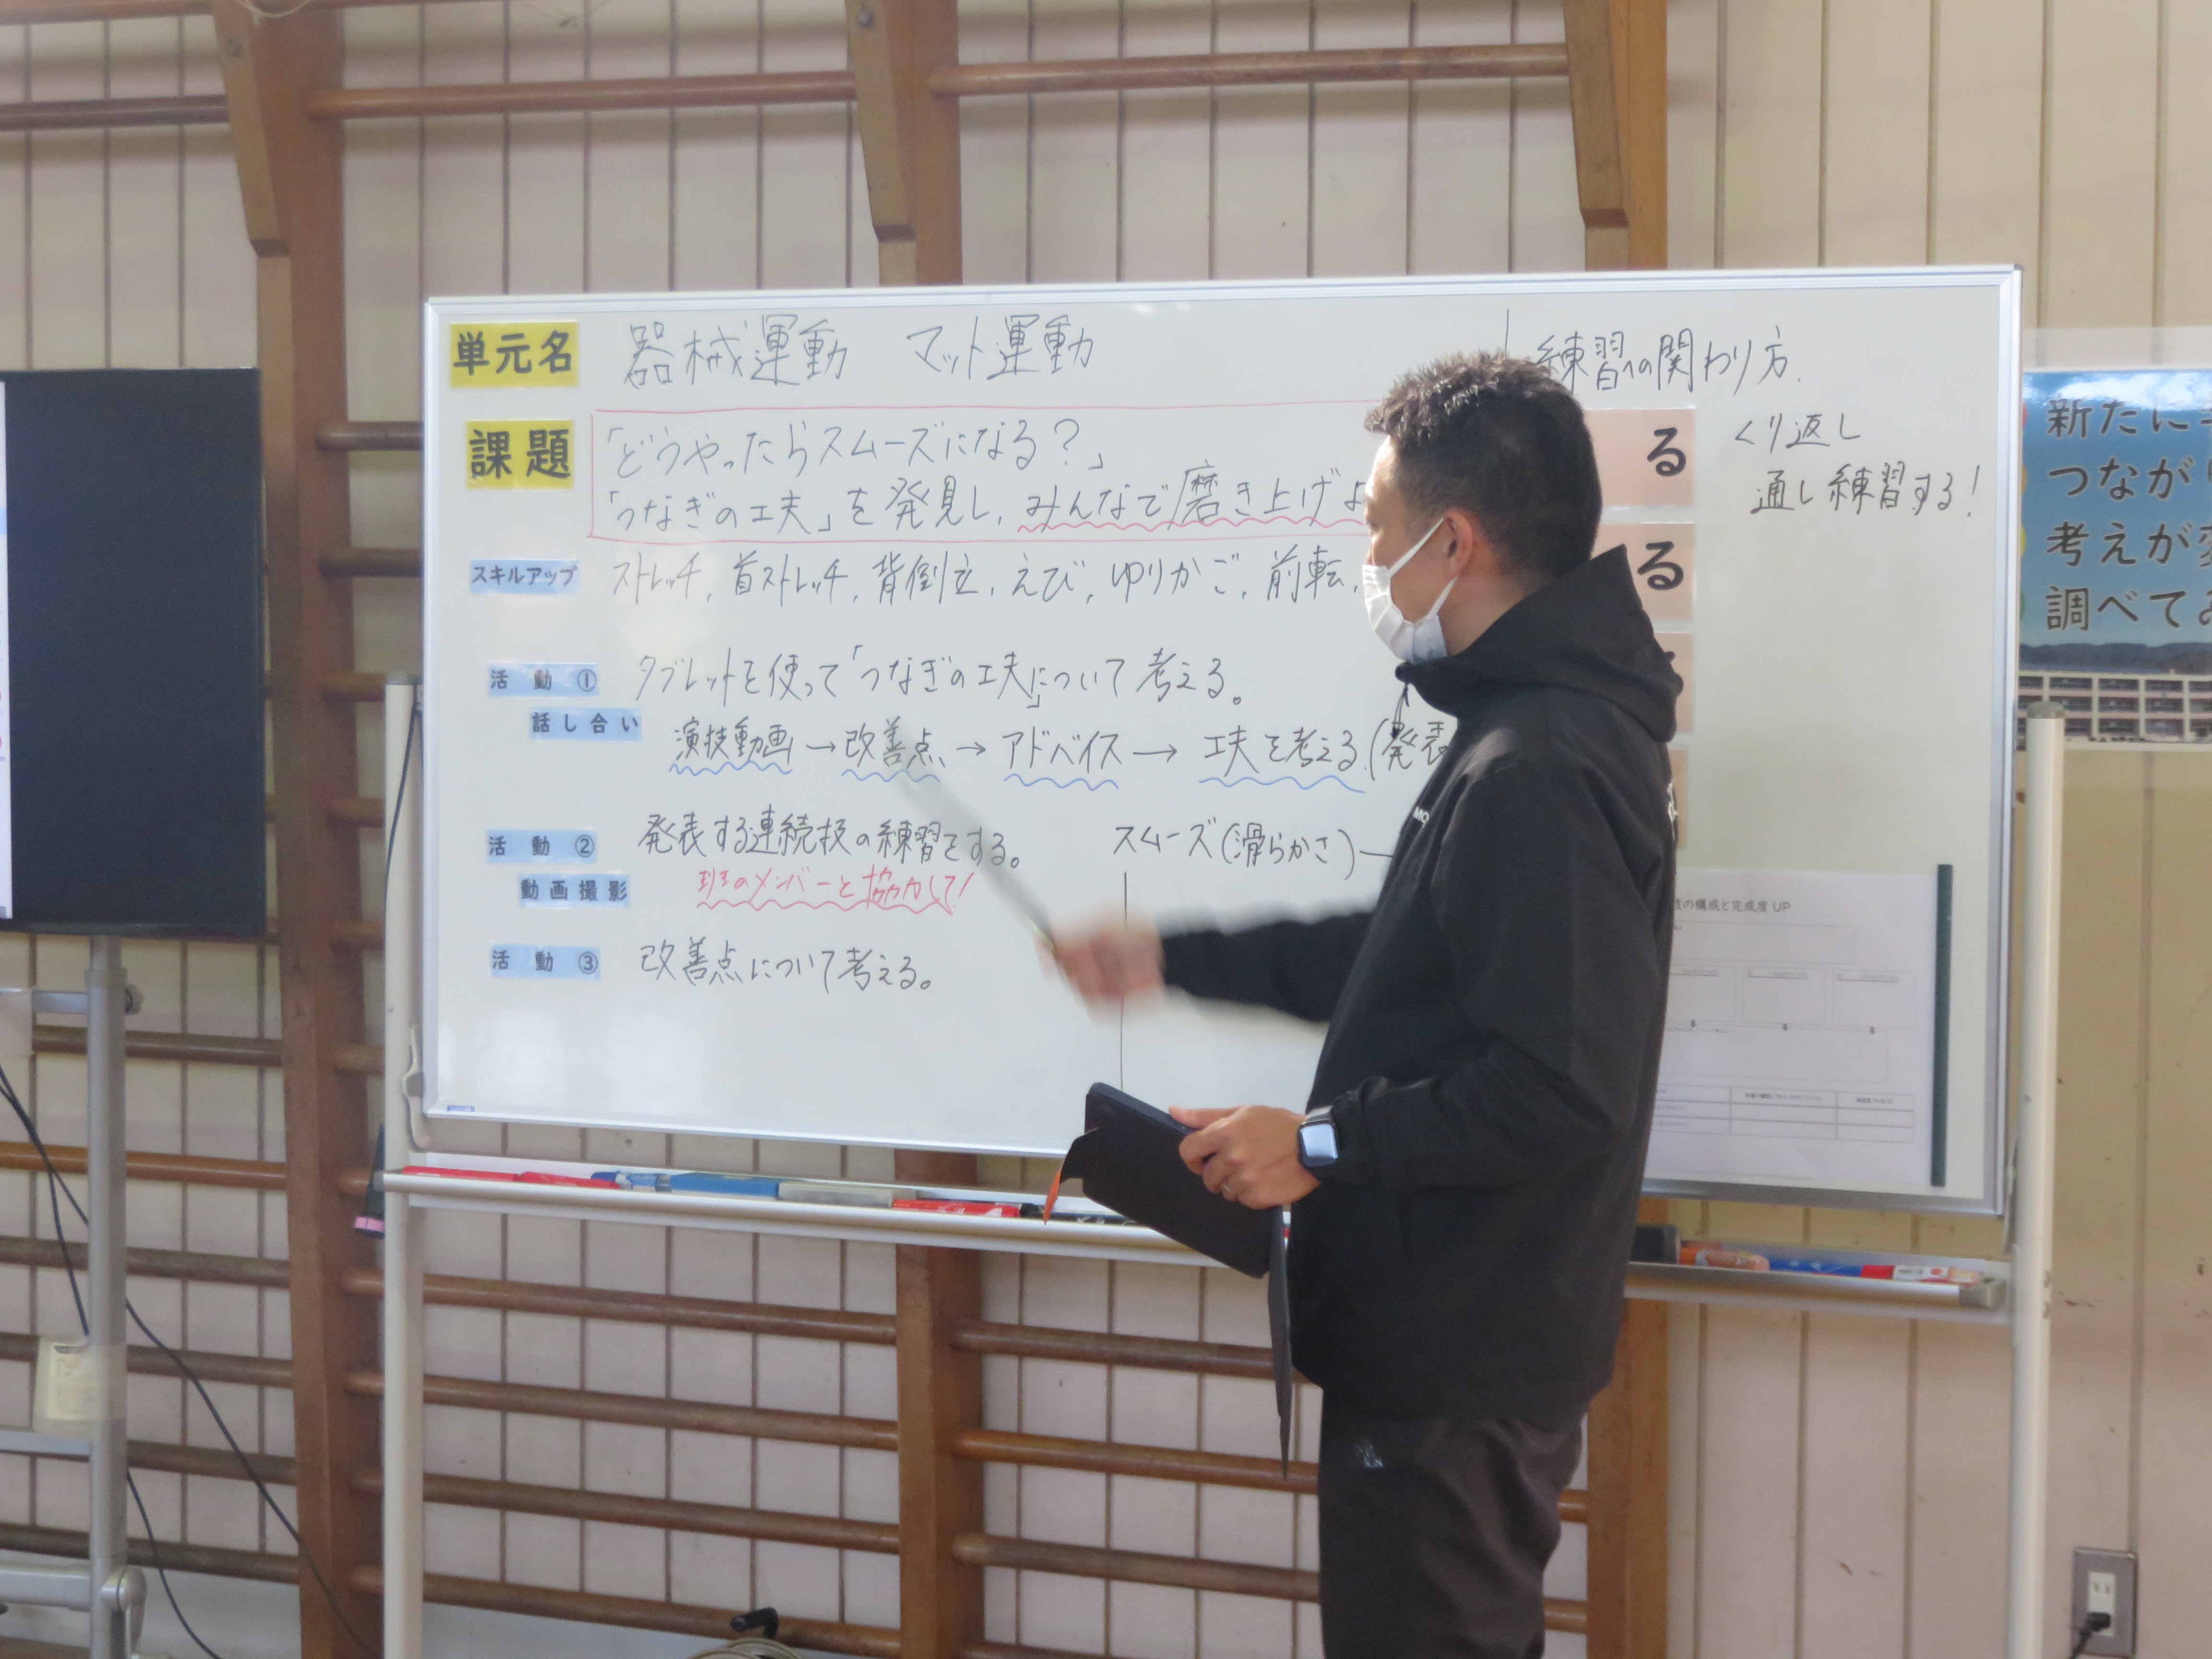 単元名 器械運動 マット運動
課題 「どうやったらスムーズになる?」
「つなぎの工夫」を発見し、みんなで磨き上げよ
スキルアップ ストレッチ, 首ストレッチ, 背倒立, えび, ゆりかご, 前転,
活動① タブレットを使って「つなぎの工夫」について考える。
話し合い 演技動画→改善点→アドバイス→工夫を考える.(発表
活動② 発表する連続技の練習をする。
動画撮影 班のメンバーと協力して!
スムーズ(滑らかさ)
活動③ 改善点について考える。
練習への関わり方.
くり返し
通し練習する!
る
る
の構成と完成度UP
新たに
つなが
考えが
調べて